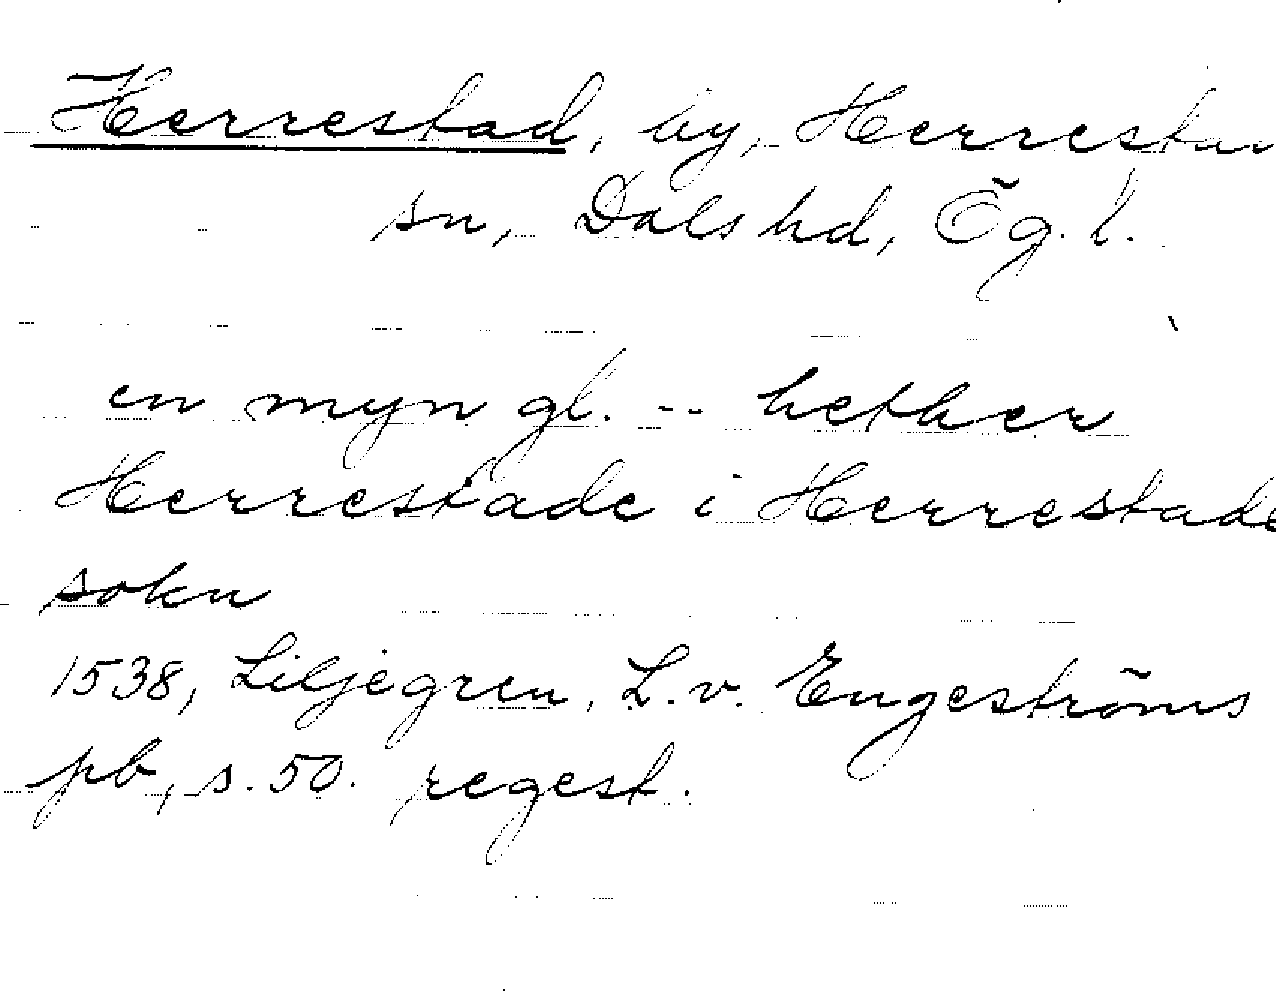 Herrestad, by, Herresta
sn, Dals hd, Ög. l.
en myn gl. -- hether
Herrestade i Herrestade
sokn
1538, Liljegren, L. v. Engeströms
pb, s. 50. regest.